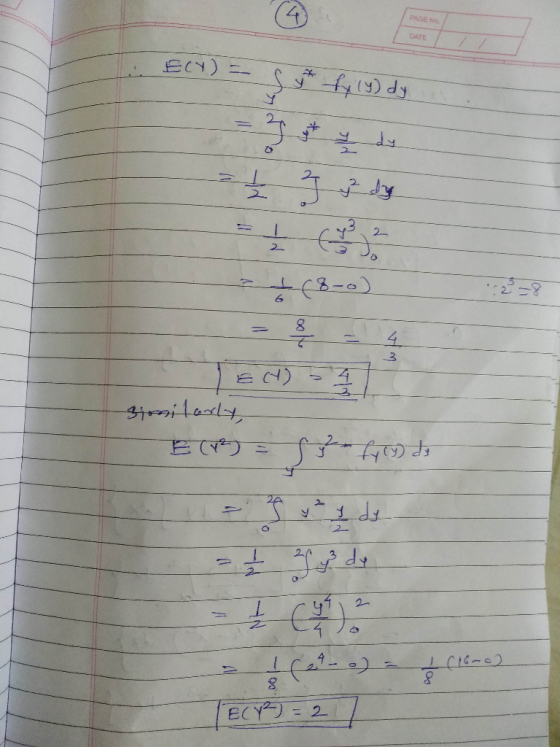 4
PAGE No.
DATE / /
∴ E(Y) = ∫_y y* f_Y(y) dy
= ∫_0^2 y* y/2 dy
= 1/2 ∫_0^2 y^2 dy
= 1/2 (y^3/3)_0^2
= 1/6 (8-0) ∵ 2^3=8
= 8/6 = 4/3
E(Y) = 4/3
Similarly,
E(Y^2) = ∫_y y^2 - f_Y(y) dy
= ∫_0^2 y^2 y/2 dy
= 1/2 ∫_0^2 y^3 dy
= 1/2 (y^4/4)_0^2
= 1/8 (2^4-0) = 1/8 (16-0)
E(Y^2) = 2